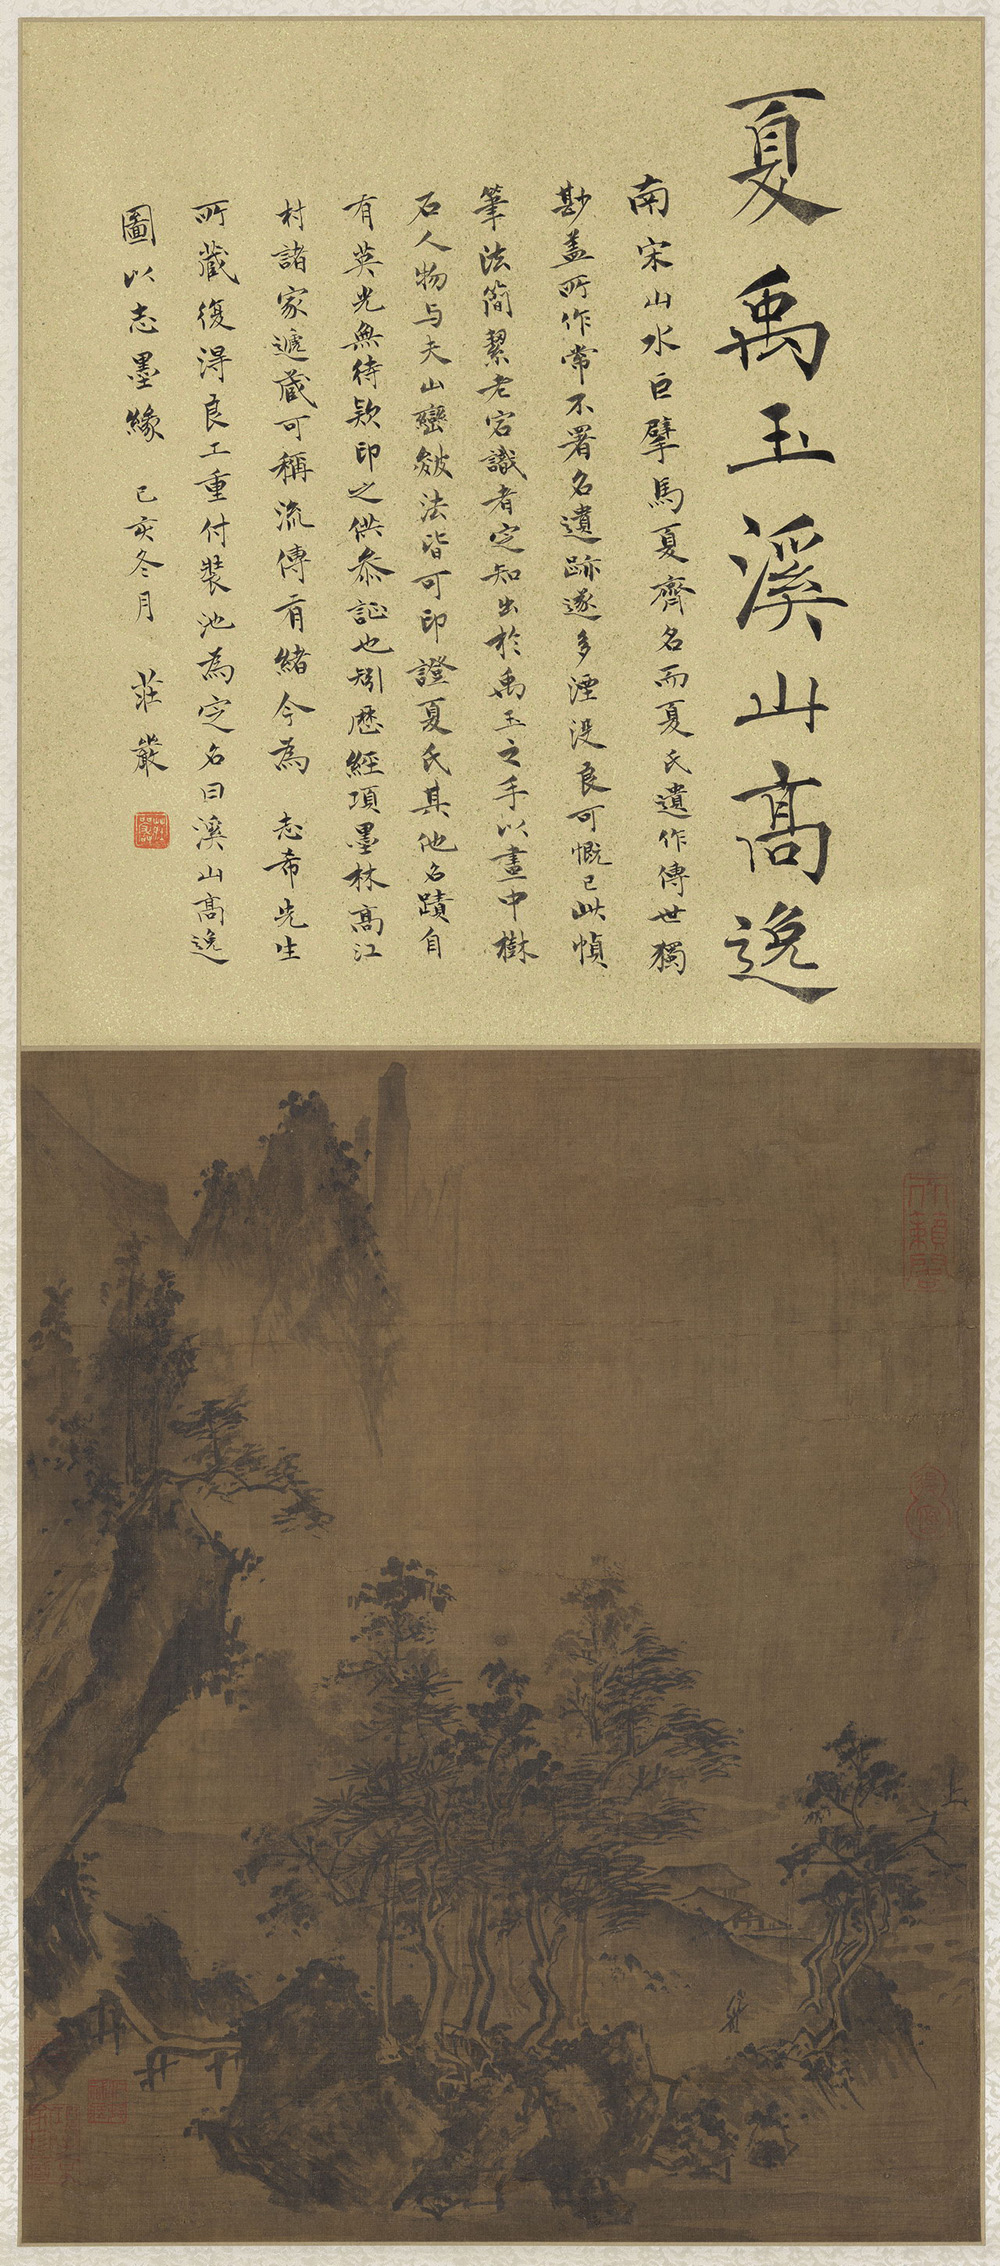 夏禹玉溪山高逸
南宋山水巨擘馬夏齊名而夏氏遺作傳世獨
尠蓋所作常不署名遺跡遂多湮沒良可慨已此幀
筆法簡絜老宕識者定知出於禹玉之手以畫中樹
石人物与夫山巒皴法皆可印證夏氏其他名蹟自
有英光無待款印之供參証也矧歷經項墨林高江
村諸家遞藏可稱流傳有緒今為 志希先生
所藏復得良工重付裝池為定名曰溪山高逸
圖以志墨緣 己亥冬月 莊嚴